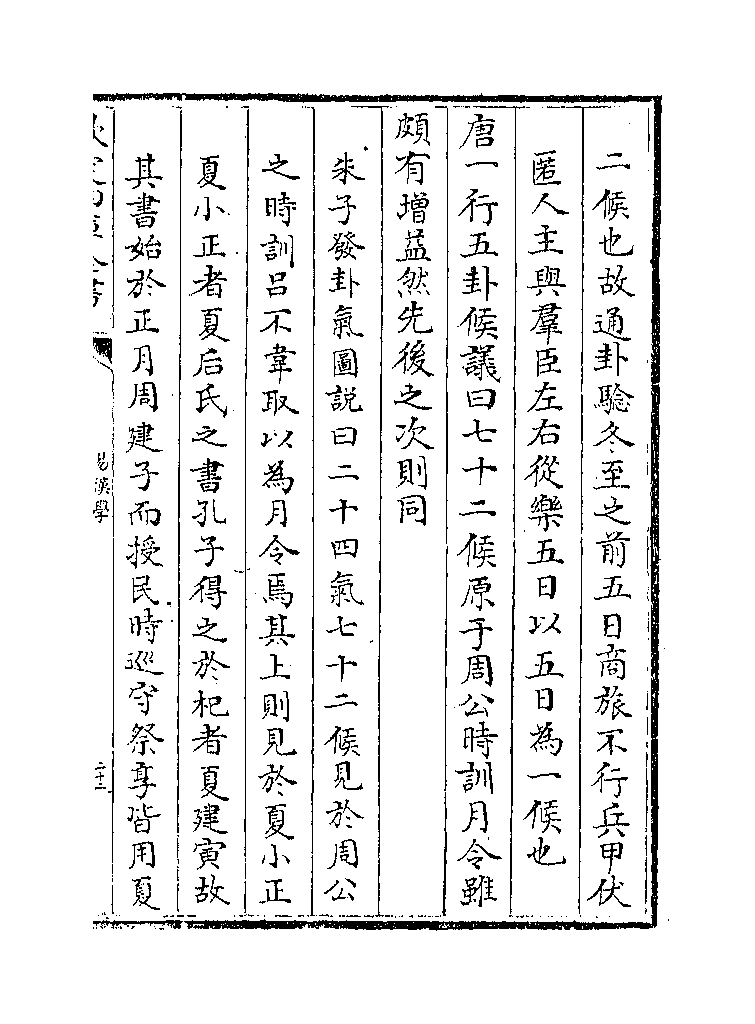 二候也故通卦驗冬至之前五日商旅不行兵甲伏
匿人主與羣臣左右從樂五日以五日為一候也
唐一行五卦候議曰七十二候原于周公時訓月令雖
頗有增益然先後之次則同
朱子發卦氣圖説曰二十四氣七十二候見於周公
之時訓吕不韋取以為月令焉其上則見於夏小正
夏小正者夏后氏之書孔子得之於杞者夏建寅故
其書始於正月周建子而授民時巡守祭享皆用夏
易漢學